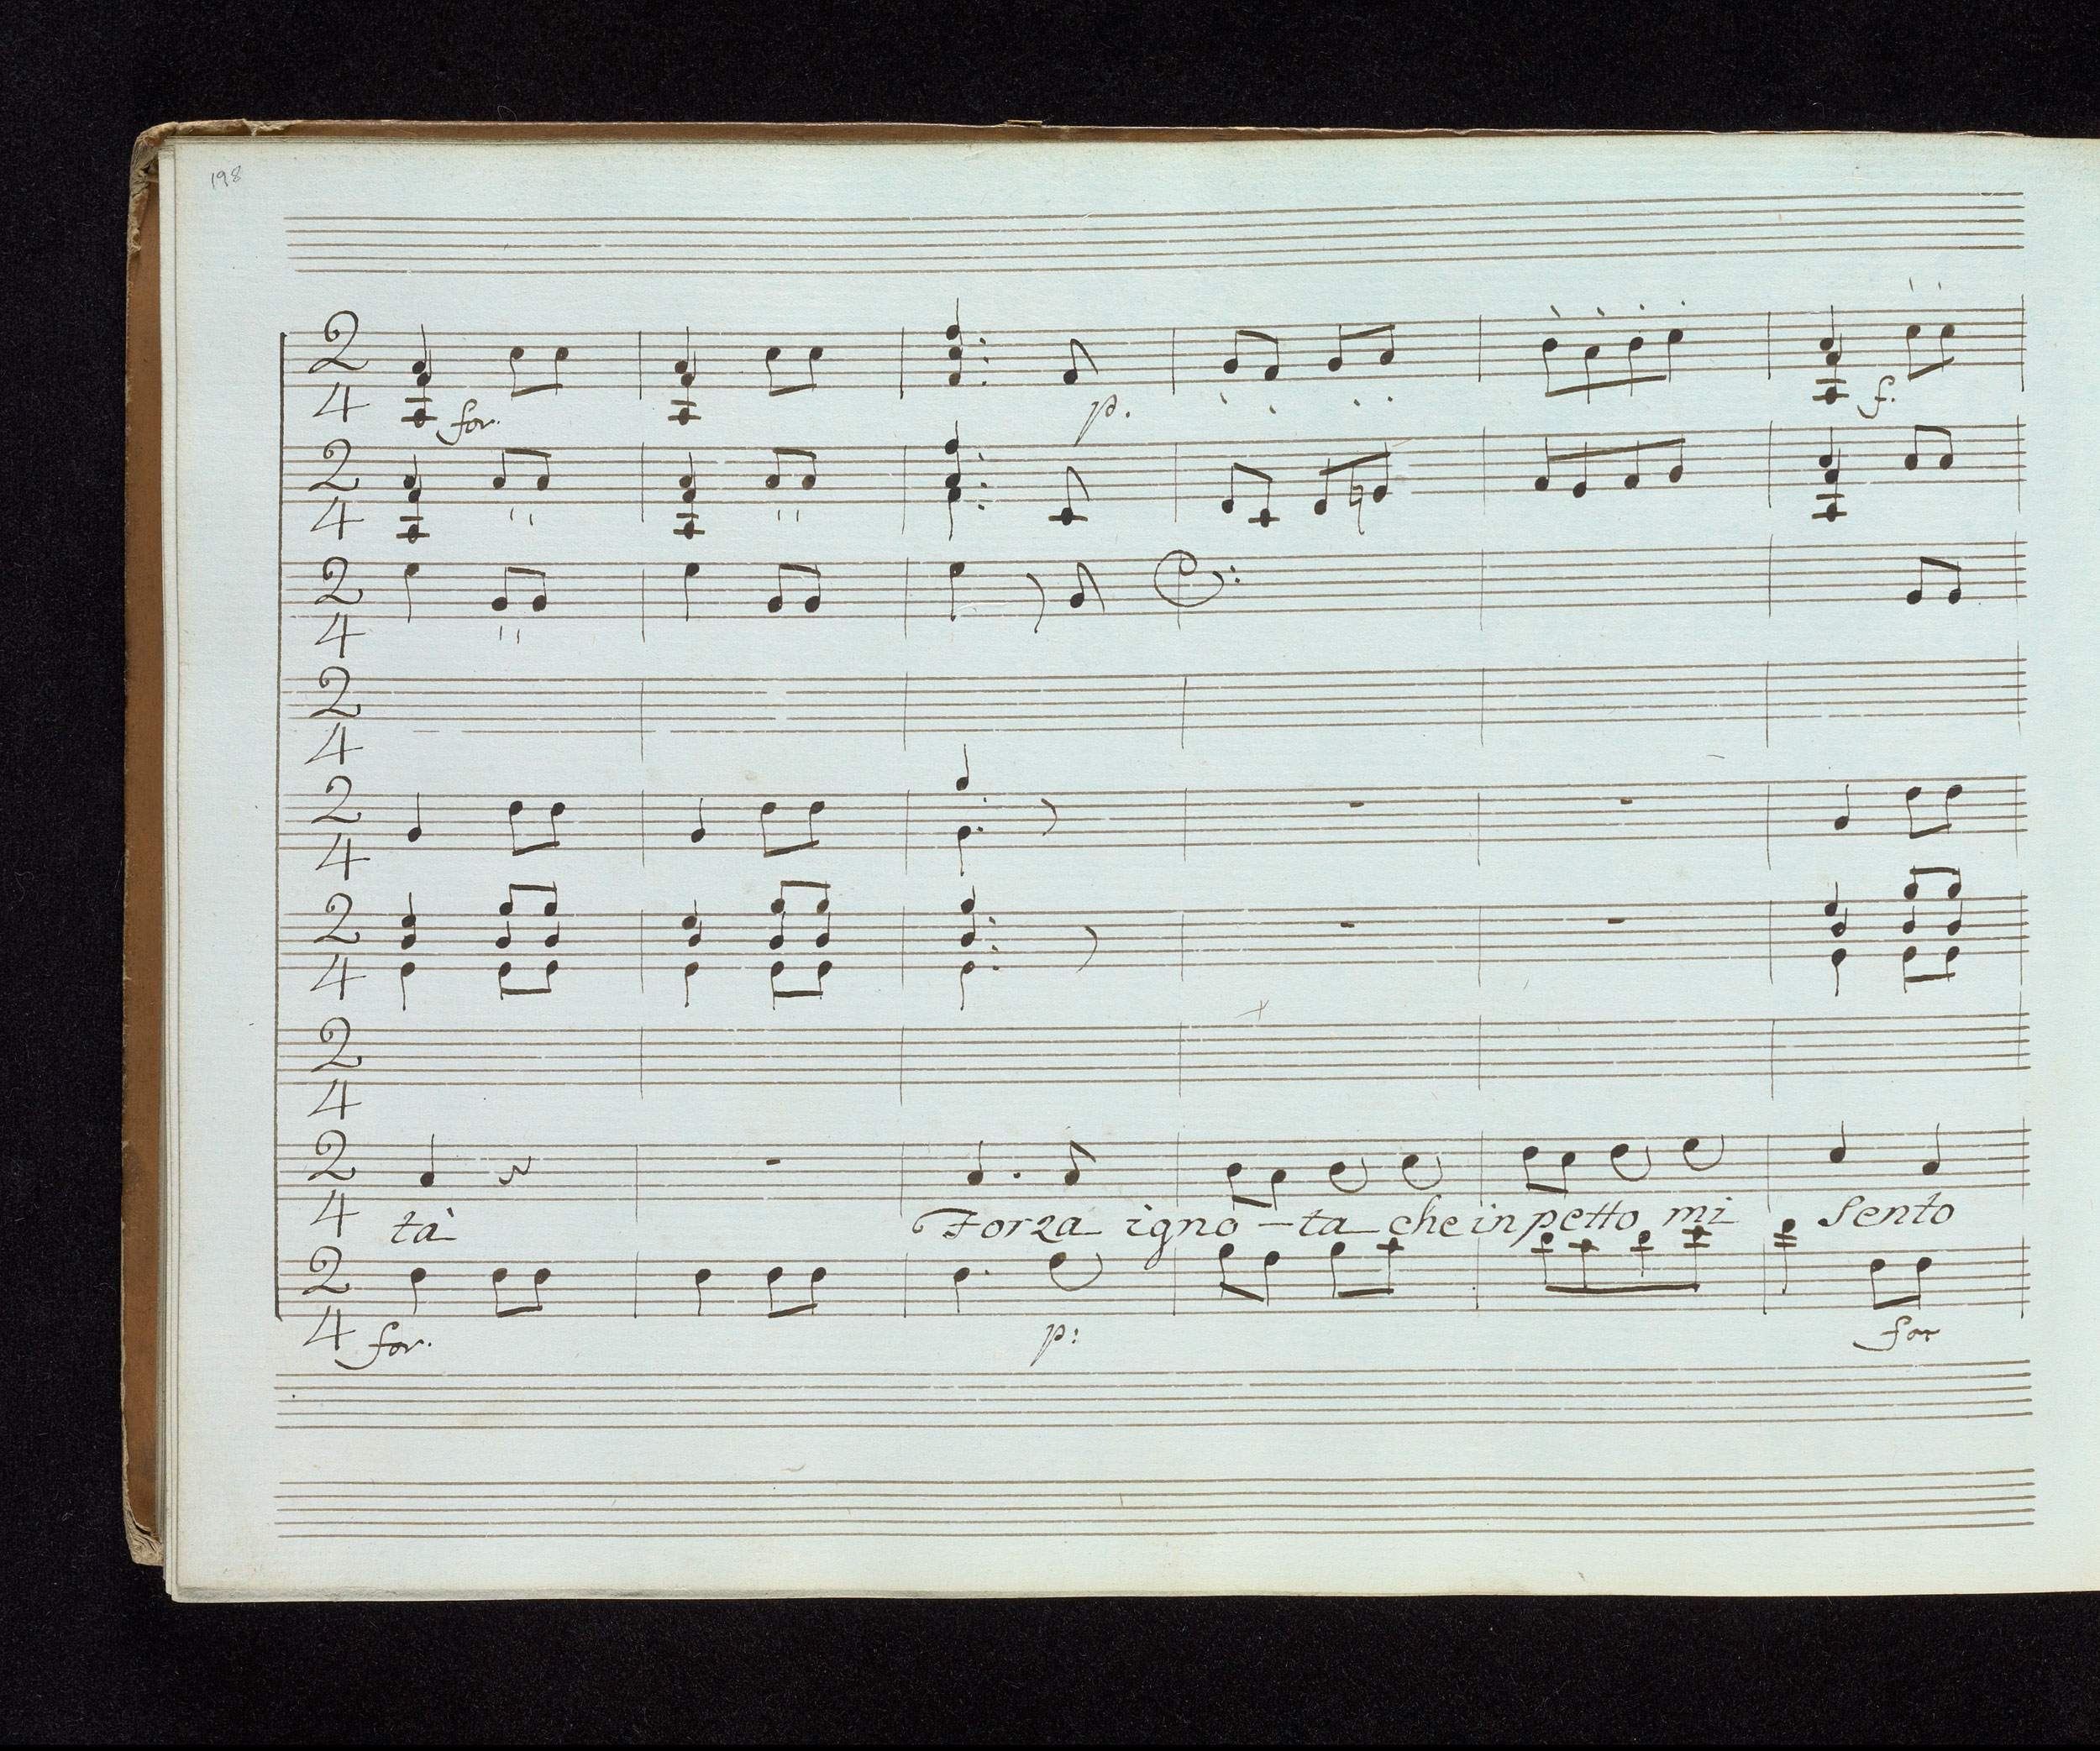 198
2
4
for.
p.
f.
2
4
2
4
2
4
2
4
2
4
2
4
2
4
tà Forza igno - ta che in petto mi Sento
2
4
for.
p:
for